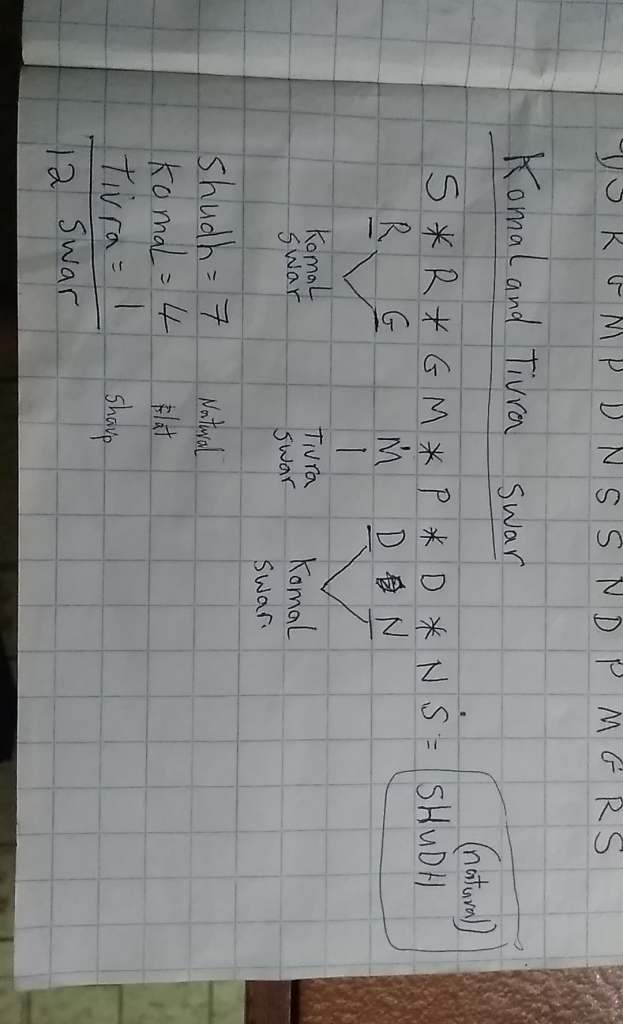 1) S R G M P D N S S N D P M G R S
Komal and Tivra Swar
(natural)
S * R * G M * P * D * N Ṡ = SHUDH
R G Ṁ D N
Komal Swar Tivra Swar Komal Swar.
Shudh = 7 Natural
Komal = 4 flat
Tivra = 1 Sharp
12 Swar